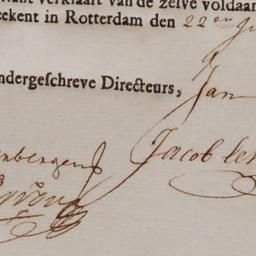 verklaart van de zelve voldaan
eekent in Rotterdam den 22en
ndergeschreve Directeurs, Jan
enbergen
Jacob